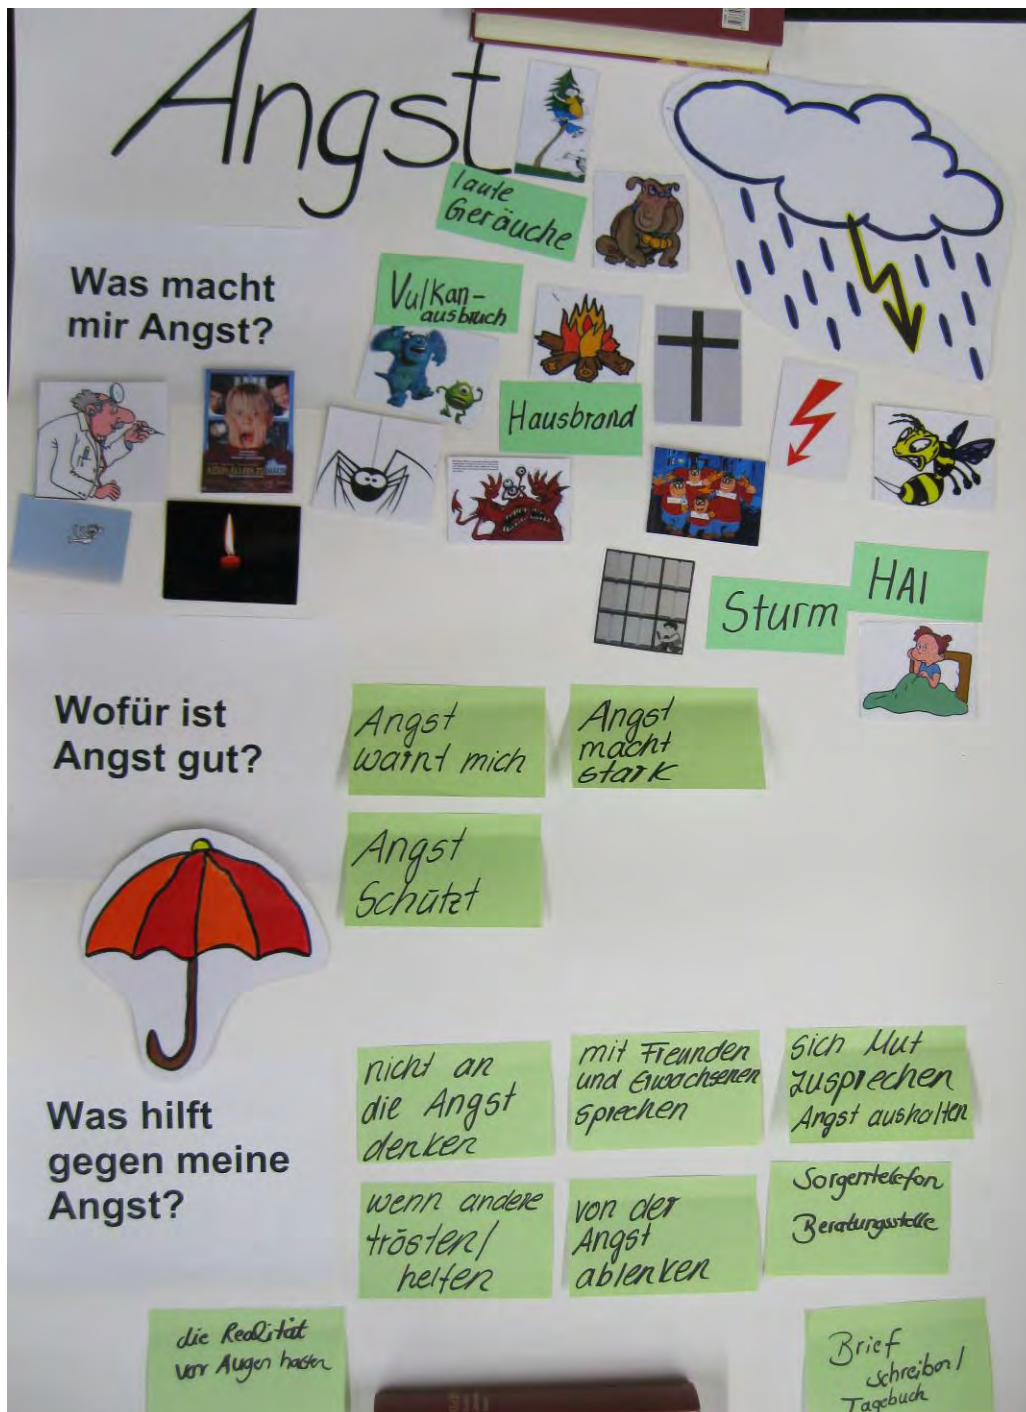 Angst
laute
Geräuche
Was macht
mir Angst?
Vulkan-
ausbruch
Hausbrand
HAI
Sturm
Wofür ist
Angst gut?
Angst
warnt mich
Angst
macht
stark
Angst
Schützt
Was hilft
gegen meine
Angst?
nicht an
die Angst
denken
mit Freunden
und Erwachsenen
sprechen
sich Mut
zusprechen
Angst aushalten
wenn andere
trösten/
helfen
von der
Angst
ablenken
Sorgentelefon
Beratungsstelle
die Realität
vor Augen halten
Brief
schreiben/
Tagebuch